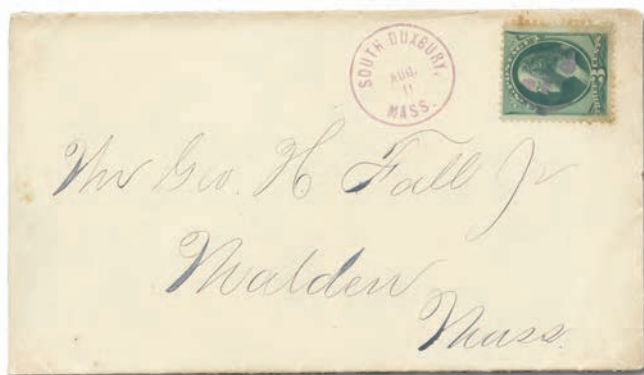 SOUTH DUXBURY,
AUG.
11
MASS.
Mr Geo. H Fall Jr
Malden
Mass.